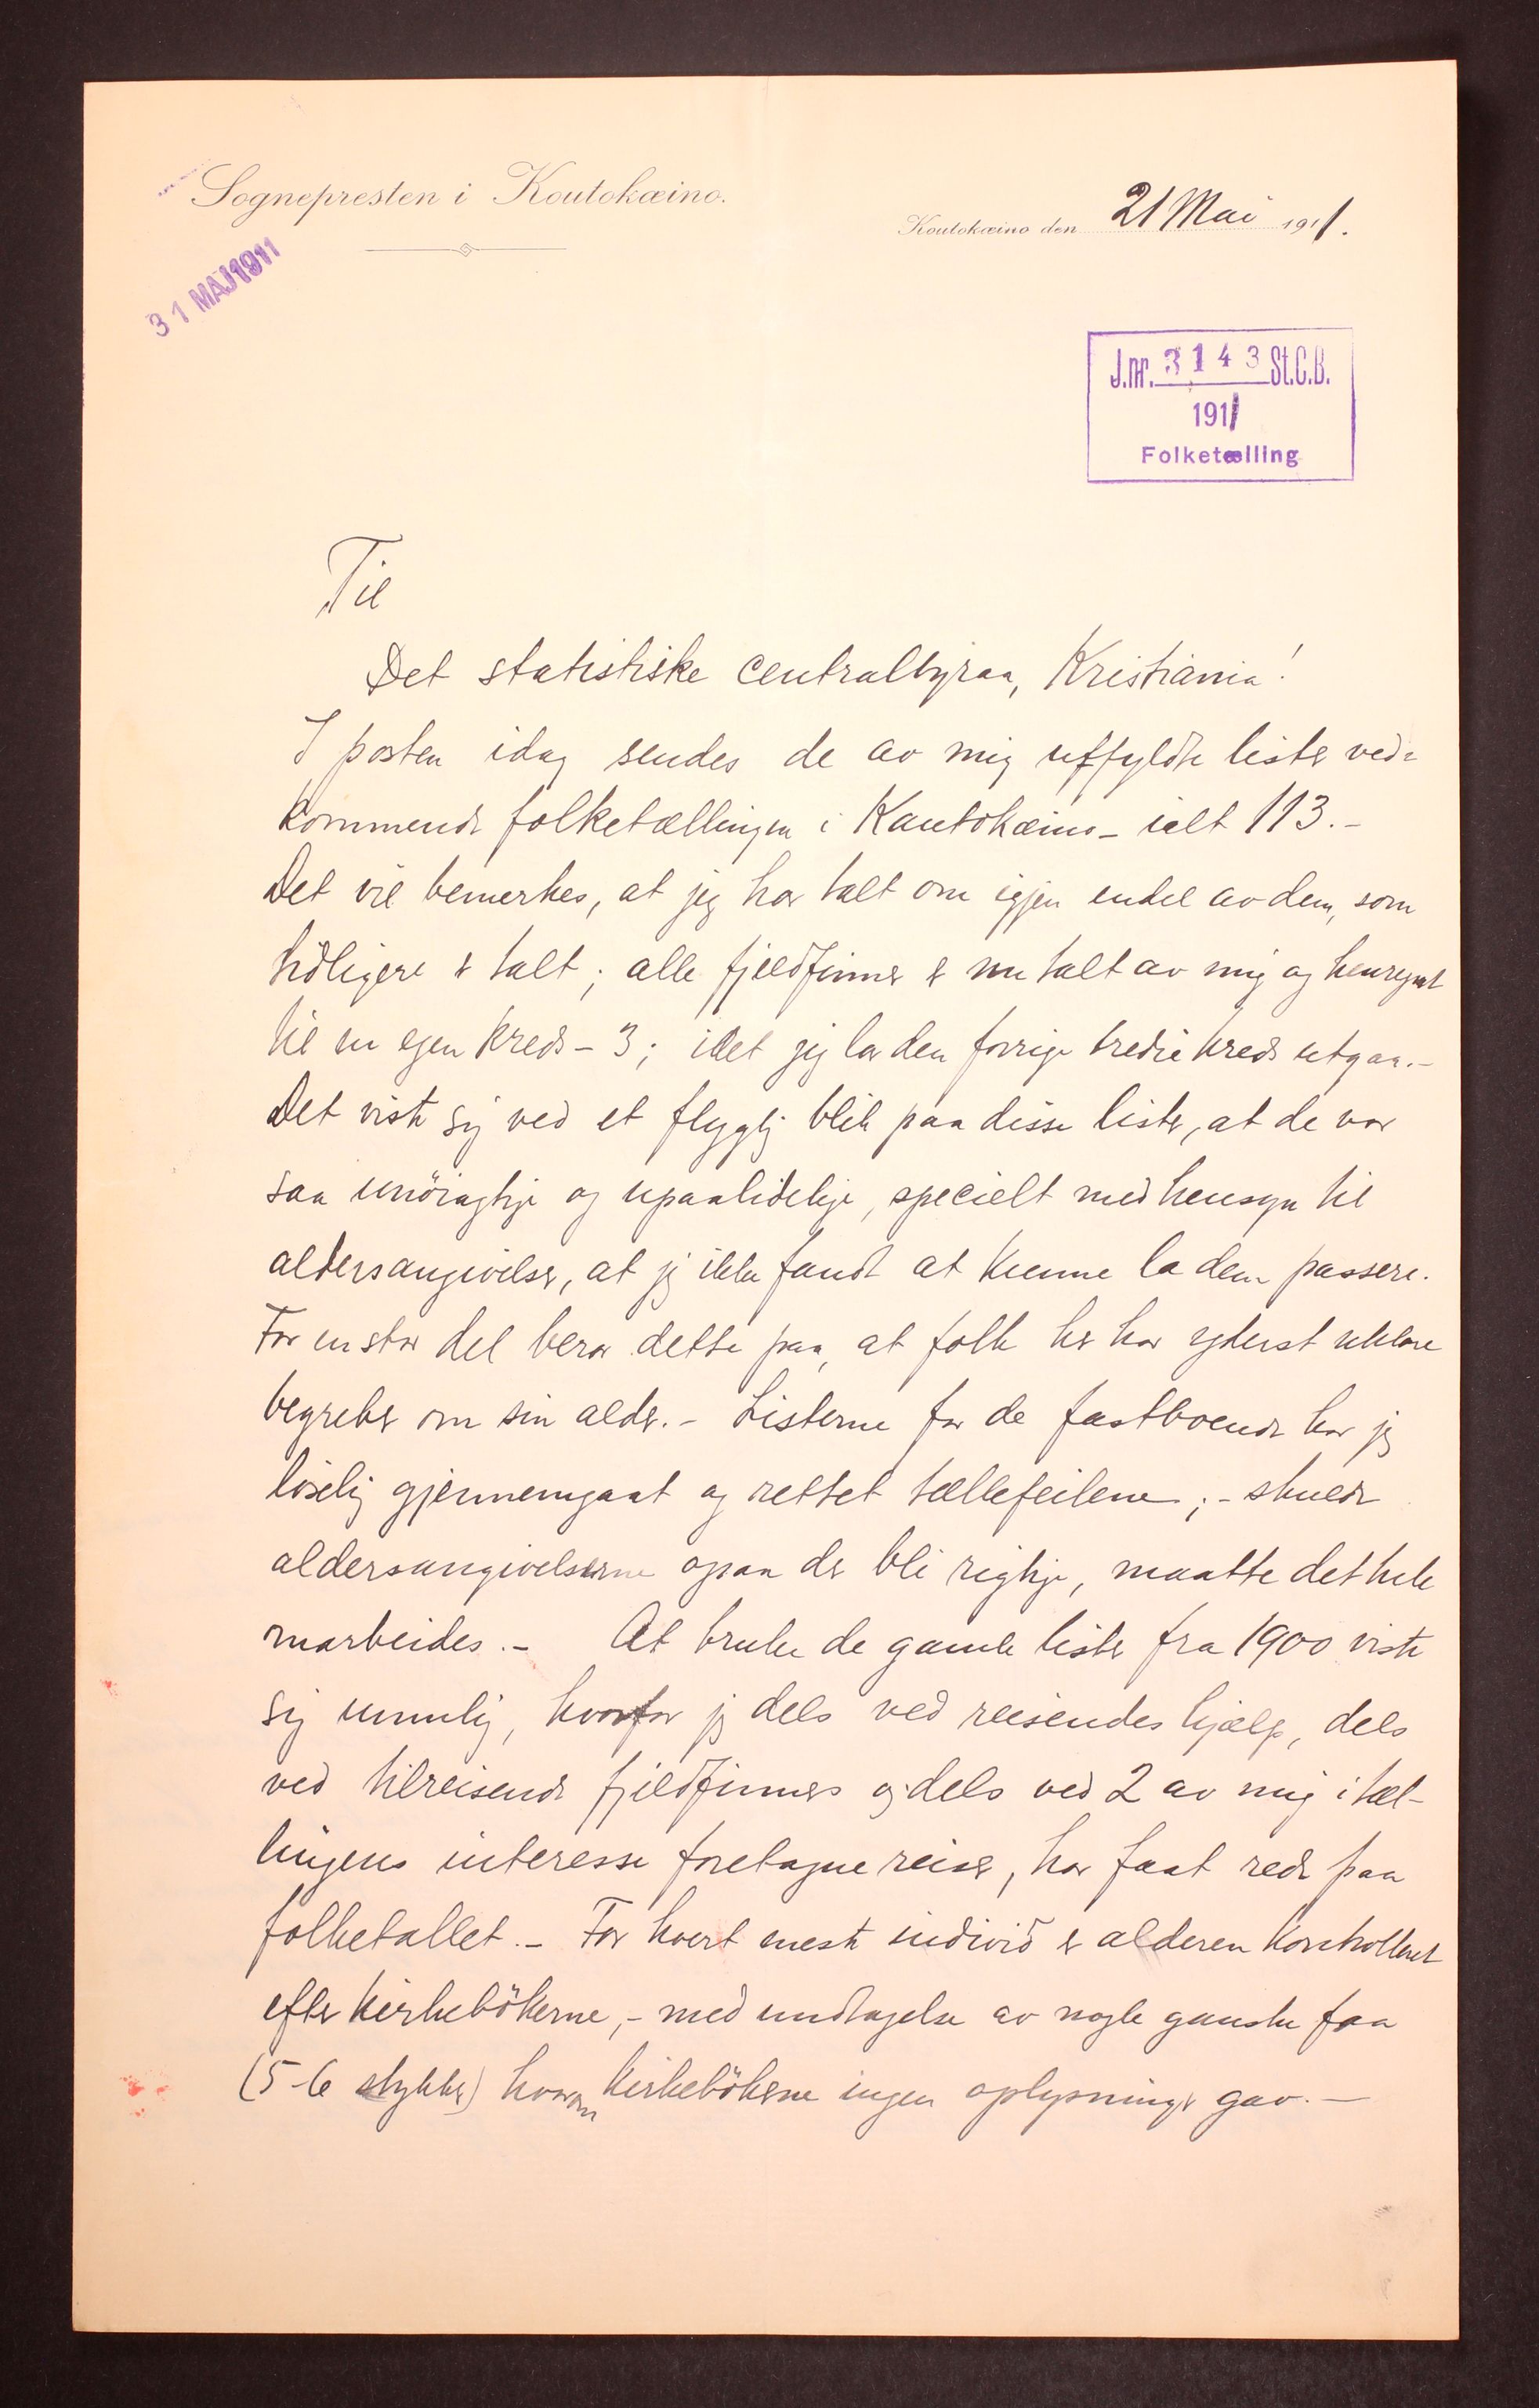 Sognepresten i Koutokæino.
Koutokæino den 21 Mai 1911.
31 MAJ 1911
J.nr. 3143 St.C.B.
1911
Folketælling
Til
Det statistiske centralbyraa, Kristiania!
I posten idag sendes de av mig utfyldte lister ved-
kommende folketællingen i Kautokæino - ialt 113.-
Det vil bemerkes, at jeg har talt om igjen endel av dem, som
tidligere er talt; alle fjeldfinner er nu talt av mig og henregnet
til en egen kreds - 3; idet jeg lar den forrige tredie kreds utgaa.-
Det viste sig ved et flygtig blik paa disse lister, at de var
saa unöiagtige og upaalidelige, specielt med hensyn til
aldersangivelser, at jeg ikke fandt at kunne la dem passere.
For en stor del beror dette paa, at folk her har yderst uklare
begreber om sin alder. - Listerne for de fastboende har jeg
löselig gjennemgaat og rettet tællefeilene; - skulde
aldersangivelserne ogsaa der bli rigtige, maatte det hele
omarbeides. - At bruke de gamle lister fra 1900 viste
sig umulig, hvorfor jeg dels ved reisendes hjælp, dels
ved tilreisende fjeldfinner og dels ved 2 av mig i tæl-
lingens interesse foretagne reiser, har faat rede paa
folketallet. - For hvert meste individ er alderen kontrolleret
efter kirkebökerne, - med undtagelse av nogle ganske faa
(5-6 stykker) hvorom kirkebökerne ingen oplysninger gav. -